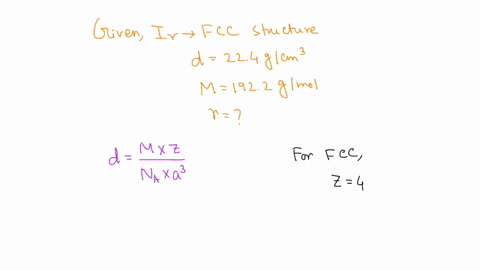 Given, Ir → FCC structure
d = 22.4 g/cm³
M = 192.2 g/mol
r = ?
d = M × Z / N_A × a³
For FCC,
Z = 4